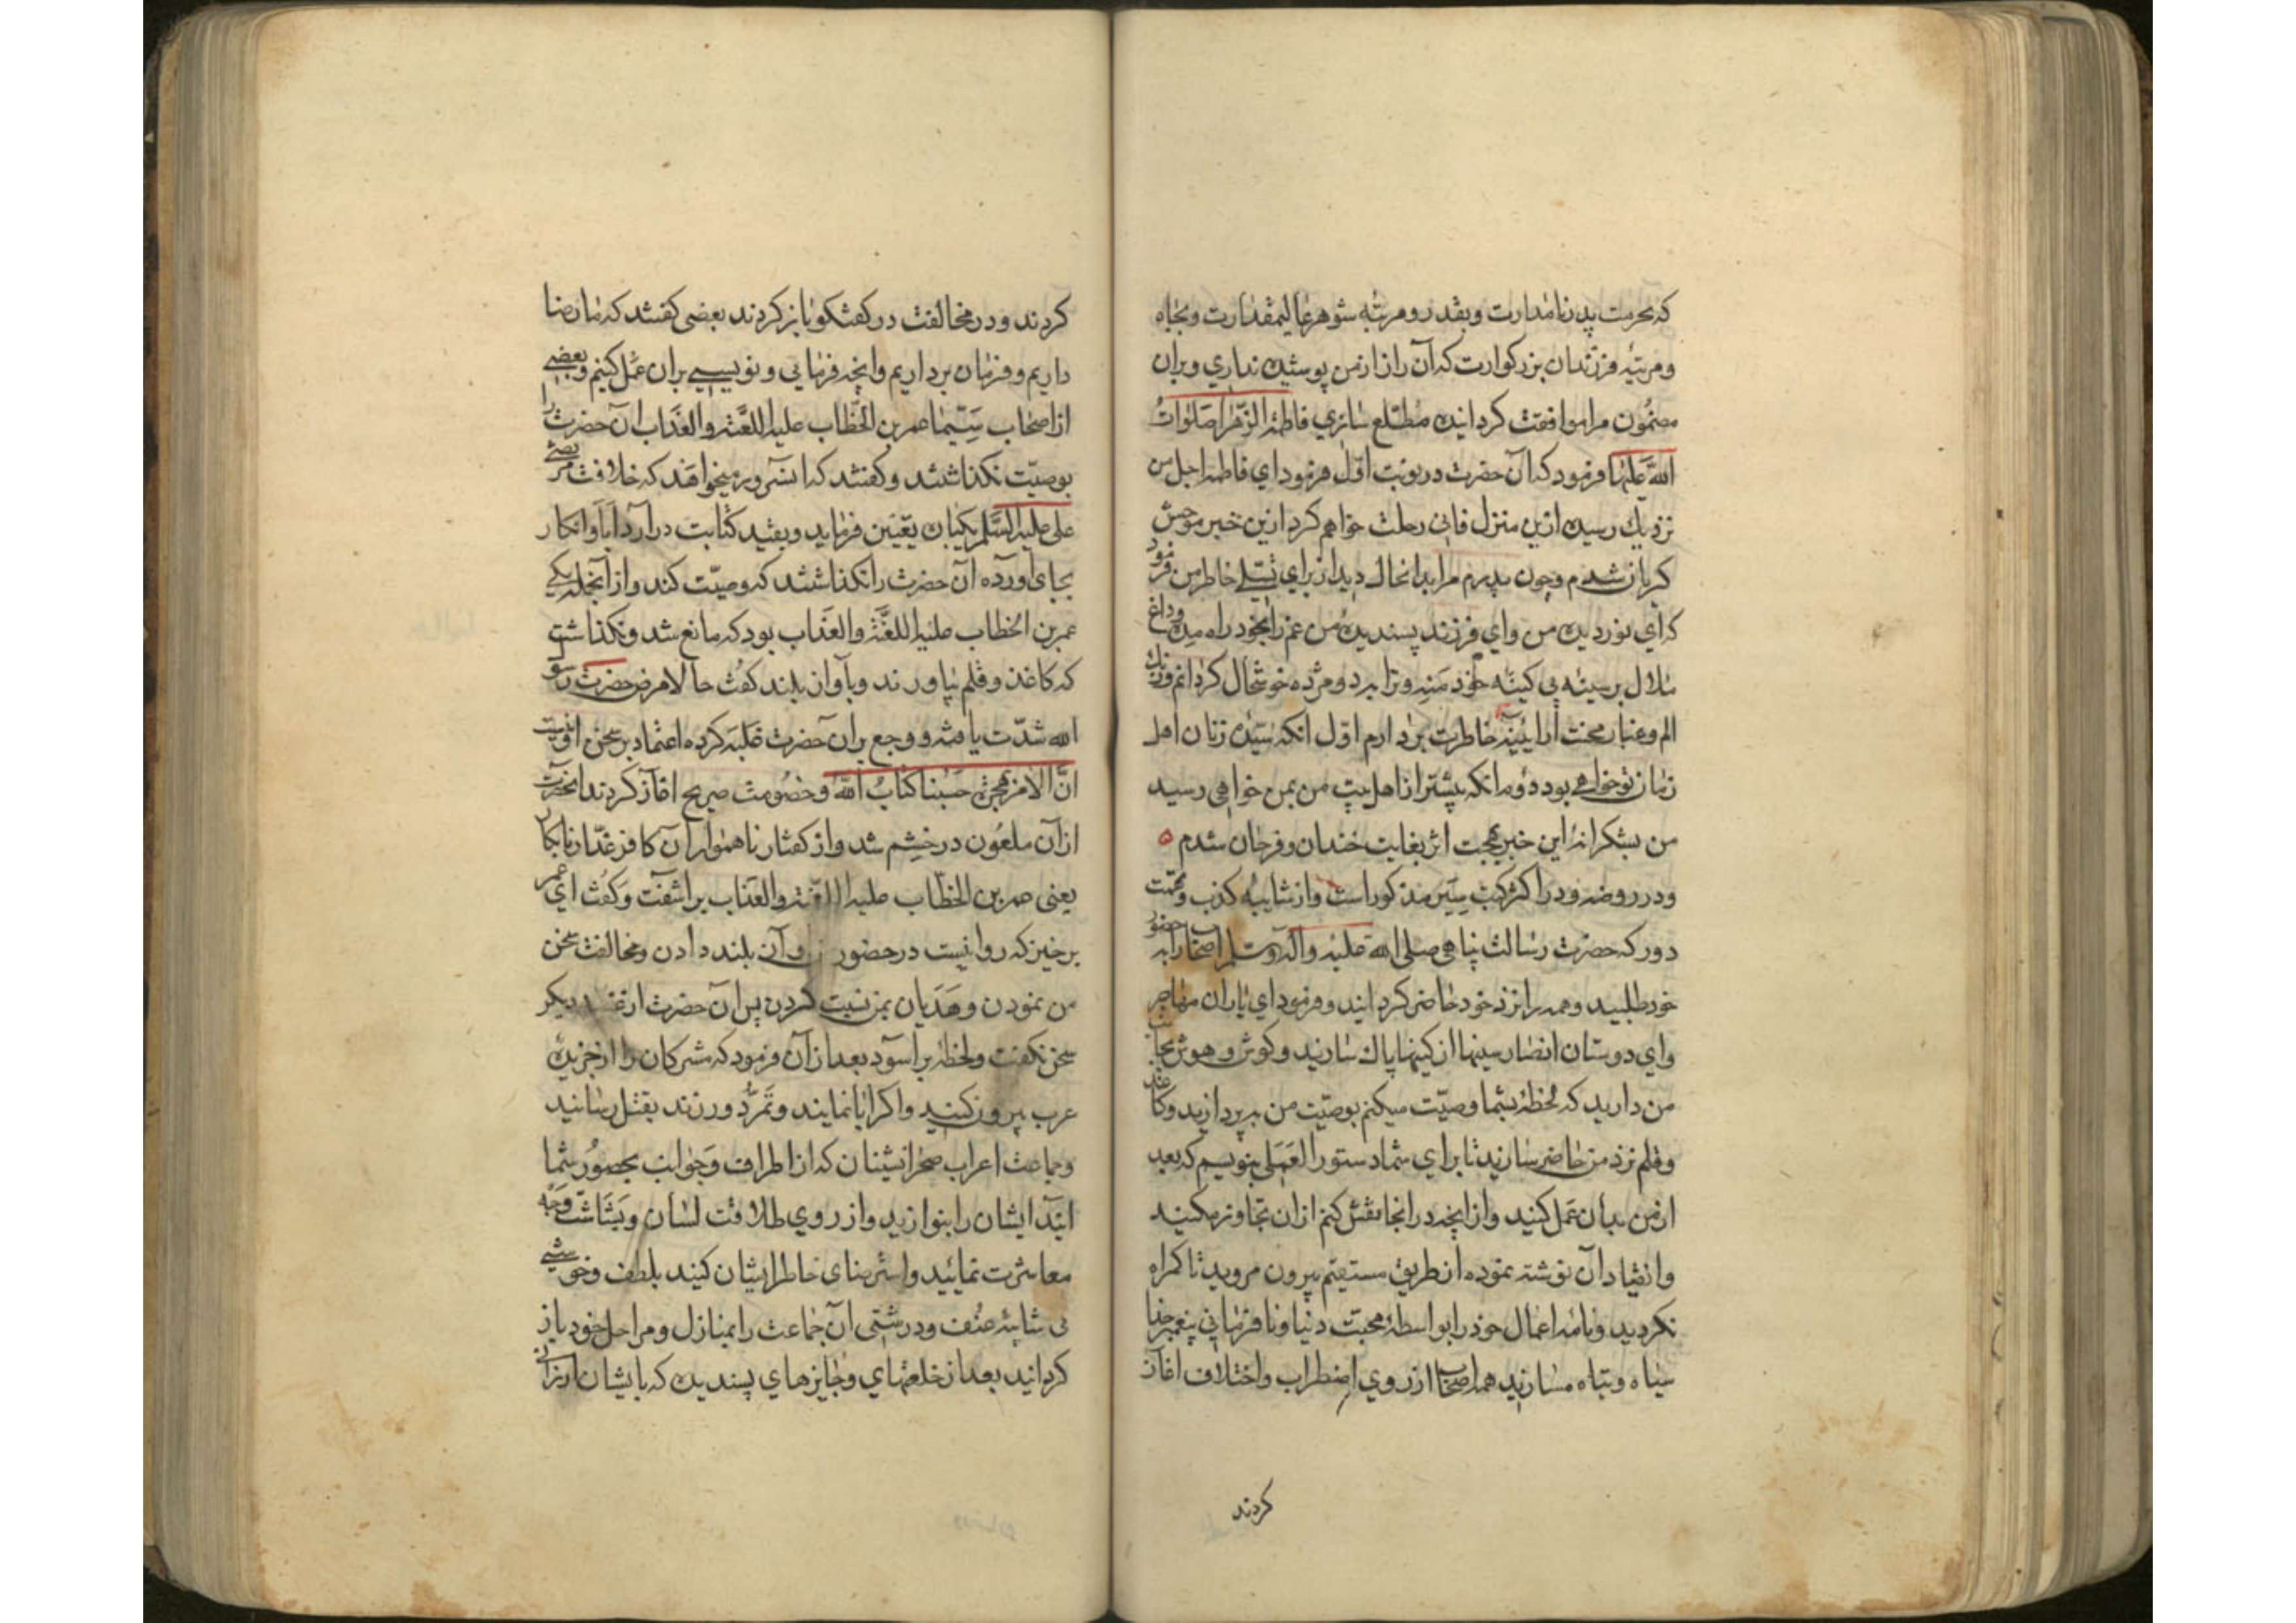 که بحرمت پدر نامدارت وبقدر ومرتبه شوهر عالیمقدارت وبجاه
ومرتبه فرزندان بزرکوارت که آن راز از من پوسیده نداری وبران
مضمون مرا موافقت کردانیده مطّلع سازی فاطمة الزّهرا صَلوٰاتُ
اللّه عَلیهٰا فرمود که آن حضرت در نوبت اوّل فرمود ای فاطمه اجل من
نزدیك رسیده ازین منزل فانی رحلت خواهم کرد ازین خبر موحش
کریان شدم وچون پدرم مرا بدانحال دید از برای تسلی خاطر من فرمود
که ای نوردیده من وای فرزند پسندیدۀ من غم را بخود راه مده وداغ
ملال بر سینه بی کینه خود منه وترا بدو مژده خوشحال کردانم وزنك
الم وغبار محنت از آیینه خاطرت بردارم اول انکه سیّدۀ زنان اهل
زمان تو خواهی بود دوم انکه پیشتر از اهل بیت من بمن خواهی رسید
من بشکرانۀ این خبر بهجت اثر بغایت خندان وفرحان شدم ه
ودر روضه ودر اکثر کتب سِیَر مذکور است واز شایبۀ کذب وتهمت
دور که حضرت رسالت پناهی صلی الله علیه وآله وسلم اصحاب را به حضور
خود طلبید وهمه را نزد خود حاضر کردانید وفرمود ای یاران مهاجر
وای دوستان انصار سینها از کینها پاك سازید وکوش وهوش بجانب
من دارید که لحظۀ بشما وصیّت میکنم بوصیّت من بپردازید وکاغذ
وقلم نزد من حاضر سازید تا برای شما دستور العَمَلی بنویسم که بعد
از من بدان عمل کنید واز انچه در انجا نقش کنم از ان تجاوز مکنید
وانقیاد آن نوشته نموده از طریق مستقیم بیرون مروید تا کمراه
نکردید ونامه اعمال خود را بواسطۀ محبت دنیا ونافرمانی پیغمبر خدا
سیاه وتباه مسازید همه اصحاب از روی اضطراب واختلاف اغاز
کردند
کردند ودر مخالفت در کفتکو باز کردند بعضی کفتند که ما رضا
داریم وفرمان برداریم وانچه فرمایی ونویسی بران عمل کنیم وبعضی
از اصحاب سَیّما عمر بن الخطّاب علیه اللعَّنة والعَذاب ان حضرت را
بوصیّت نکذاشتند وکفتند که انسرور میخواهد که خلافت مرتضی
علی علیه السَّلم یکبان یقیین فرماید وبقید کتابت درآرد اباوانکار
بجای اورده ان حضرت را نکذاشتند که وصیّت کند واز آنجمله یکی
عمر بن الخطاب علیه اللعَّنة والعَذاب بود که مانع شد ونکذاشت
که کاغذ وقلم بیاورند وبآواز بلند کفت حالا مرض حضرت رسول
الله شدّت یافته ووجع بران حضرت غلبه کرده اعتماد بر سخن او نیست
انّ الامر یهجر حَسْبنا کتابُ اللّه وخصُومت صریح اغاز کردند انحضرت
از آن ملعُون در خشم شد واز کفتار ناهموار آن کافر غدّار نابکار
یعنی عمر بن الخطاب علیه اللعّنة والعذاب براشفت وکفت ای عمر
برخیز که روا نیست در حضور من آواز بلند دادن ومخالفت سخن
من نمودن وهَذَیان بمن نسبت کردن پس آن حضرت از غضب دیکر
سخن نکفت ولحظۀ براسود بعد از آن فرمود که مشرکان را از جزیرۀ
عرب بیرون کنید واکر ابا نمایند وتمرُّد ورزند بقتل رسانید
وجماعت اعراب صحرانیشنان که از اطراف وَجوانب بحضُور شما
ایند ایشان را بنوازید واز روی طلاقت لسان وبَشاشت وَجه
معاشرت نمائید واسترضای خاطر ایشان کنید بلطف وخوشی
بی شایبۀ عنُف ودرشتی ان جماعت را بمنازل ومراحل خود باز
کردانید بعد از خلعتهای وجایزهای پسندیده که بایشان ارزانی